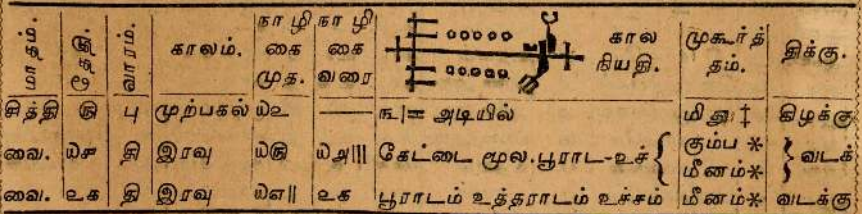 மாதம். தேதி. வாரம். காலம். நாழிகை முத. நாழிகை வரை கால நியதி. முகூர்த்தம். திக்கு.
சித்தி ௫ பு முற்பகல் ௰௨ —— ௩|= அடியில் மிது ‡ கிழக்கு
வை. ௰௪ தி இரவு ௰௫ ௰௮||| கேட்டை மூல.பூராட-உச் { கும்ப * மீனம்* } வடக்
வை. ௨௧ தி இரவு ௰௭|| ௨௧ பூராடம் உத்தராடம் உச்சம் மீனம்* வடக்கு